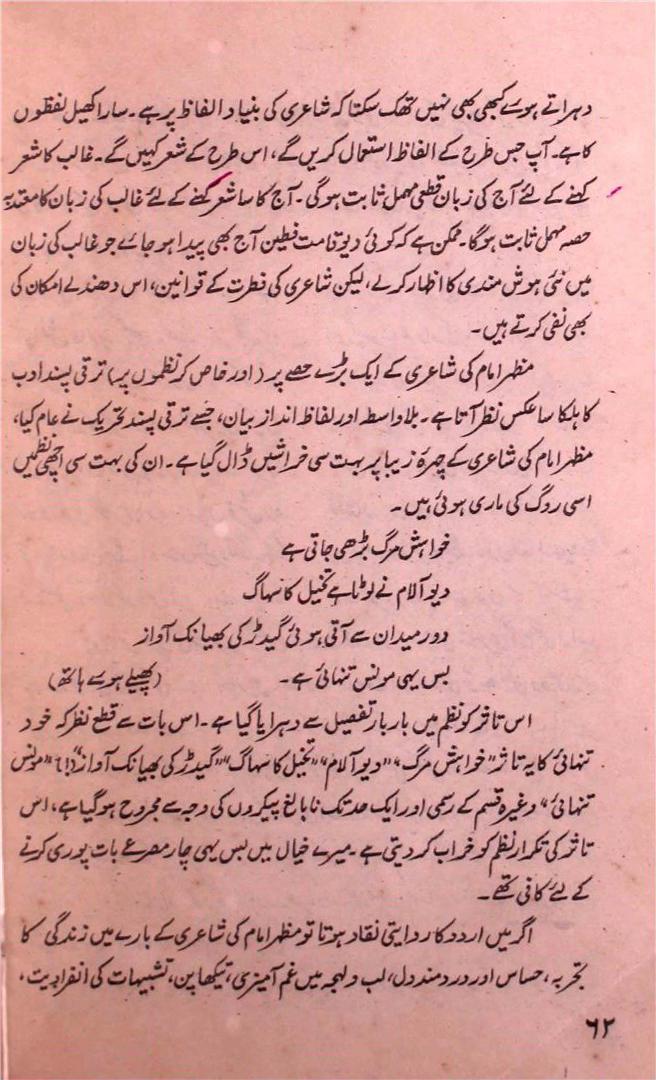 دہراتے ہوے کبھی بھی نہیں تھک سکتا کہ شاعری کی بنیاد الفاظ پر ہے۔ سارا کھیل لفظوں
کا ہے۔ آپ جس طرح کے الفاظ استعمال کریں گے، اس طرح کے شعر کہیں گے۔ غالب کا شعر
کہنے کے لئے آج کی زبان قطعی مہمل ثابت ہوگی۔ آج کا سا شعر کہنے کے لئے غالب کی زبان کا معتدبہ
حصہ مہمل ثابت ہوگا۔ ممکن ہے کہ کوئی دیو قامت فطین آج بھی پیدا ہو جاے جو غالب کی زبان
میں نئی ہوش مندی کا اظہار کرلے، لیکن شاعری کی فطرت کے قوانین، اس دھندلے امکان کی
بھی نفی کرتے ہیں۔
مظہر امام کی شاعری کے ایک بڑے حصے پر (اور خاص کر نظموں پر) ترقی پسند ادب
کا ہلکا سا عکس نظر آتا ہے۔ بلاواسطہ اور لفاظ انداز بیان، جسے ترقی پسند تحریک نے عام کیا،
مظہر امام کی شاعری کے چہرۂ زیبا پر بہت سی خراشیں ڈال گیا ہے۔ ان کی بہت سی اچھی نظمیں
اسی روگ کی ماری ہوئی ہیں۔
خواہش مرگ بڑھی جاتی ہے
دیو آلام نے لوٹا ہے تخیل کا سہاگ
دور میدان سے آتی ہوئی گیدڑ کی بھیانک آواز
بس یہی مونس تنہائی ہے۔ (پھیلے ہوے ہاتھ)
اس تاثر کو نظم میں بار بار تفصیل سے دہرایا گیا ہے۔ اس بات سے قطع نظر کہ خود
تنہائی کا یہ تاثر "خواہش مرگ" "دیو آلام" "تخیل کا سہاگ" "گیدڑ کی بھیانک آواز" (!) "مونس
تنہائی" وغیرہ قسم کے رسمی اور ایک حد تک نابالغ پیکروں کی وجہ سے مجروح ہوگیا ہے، اس
تاثر کی تکرار نظم کو خراب کر دیتی ہے۔ میرے خیال میں بس یہی چار مصرعے بات پوری کرنے
کے لئے کافی تھے۔
اگر میں اردو کا روایتی نقاد ہوتا تو مظہر امام کی شاعری کے بارے میں زندگی کا
تجربہ، حساس اور دردمند دل، لب و لہجہ میں غم آمیزی، تیکھا پن، تشبیہات کی انفرادیت،
۶۲